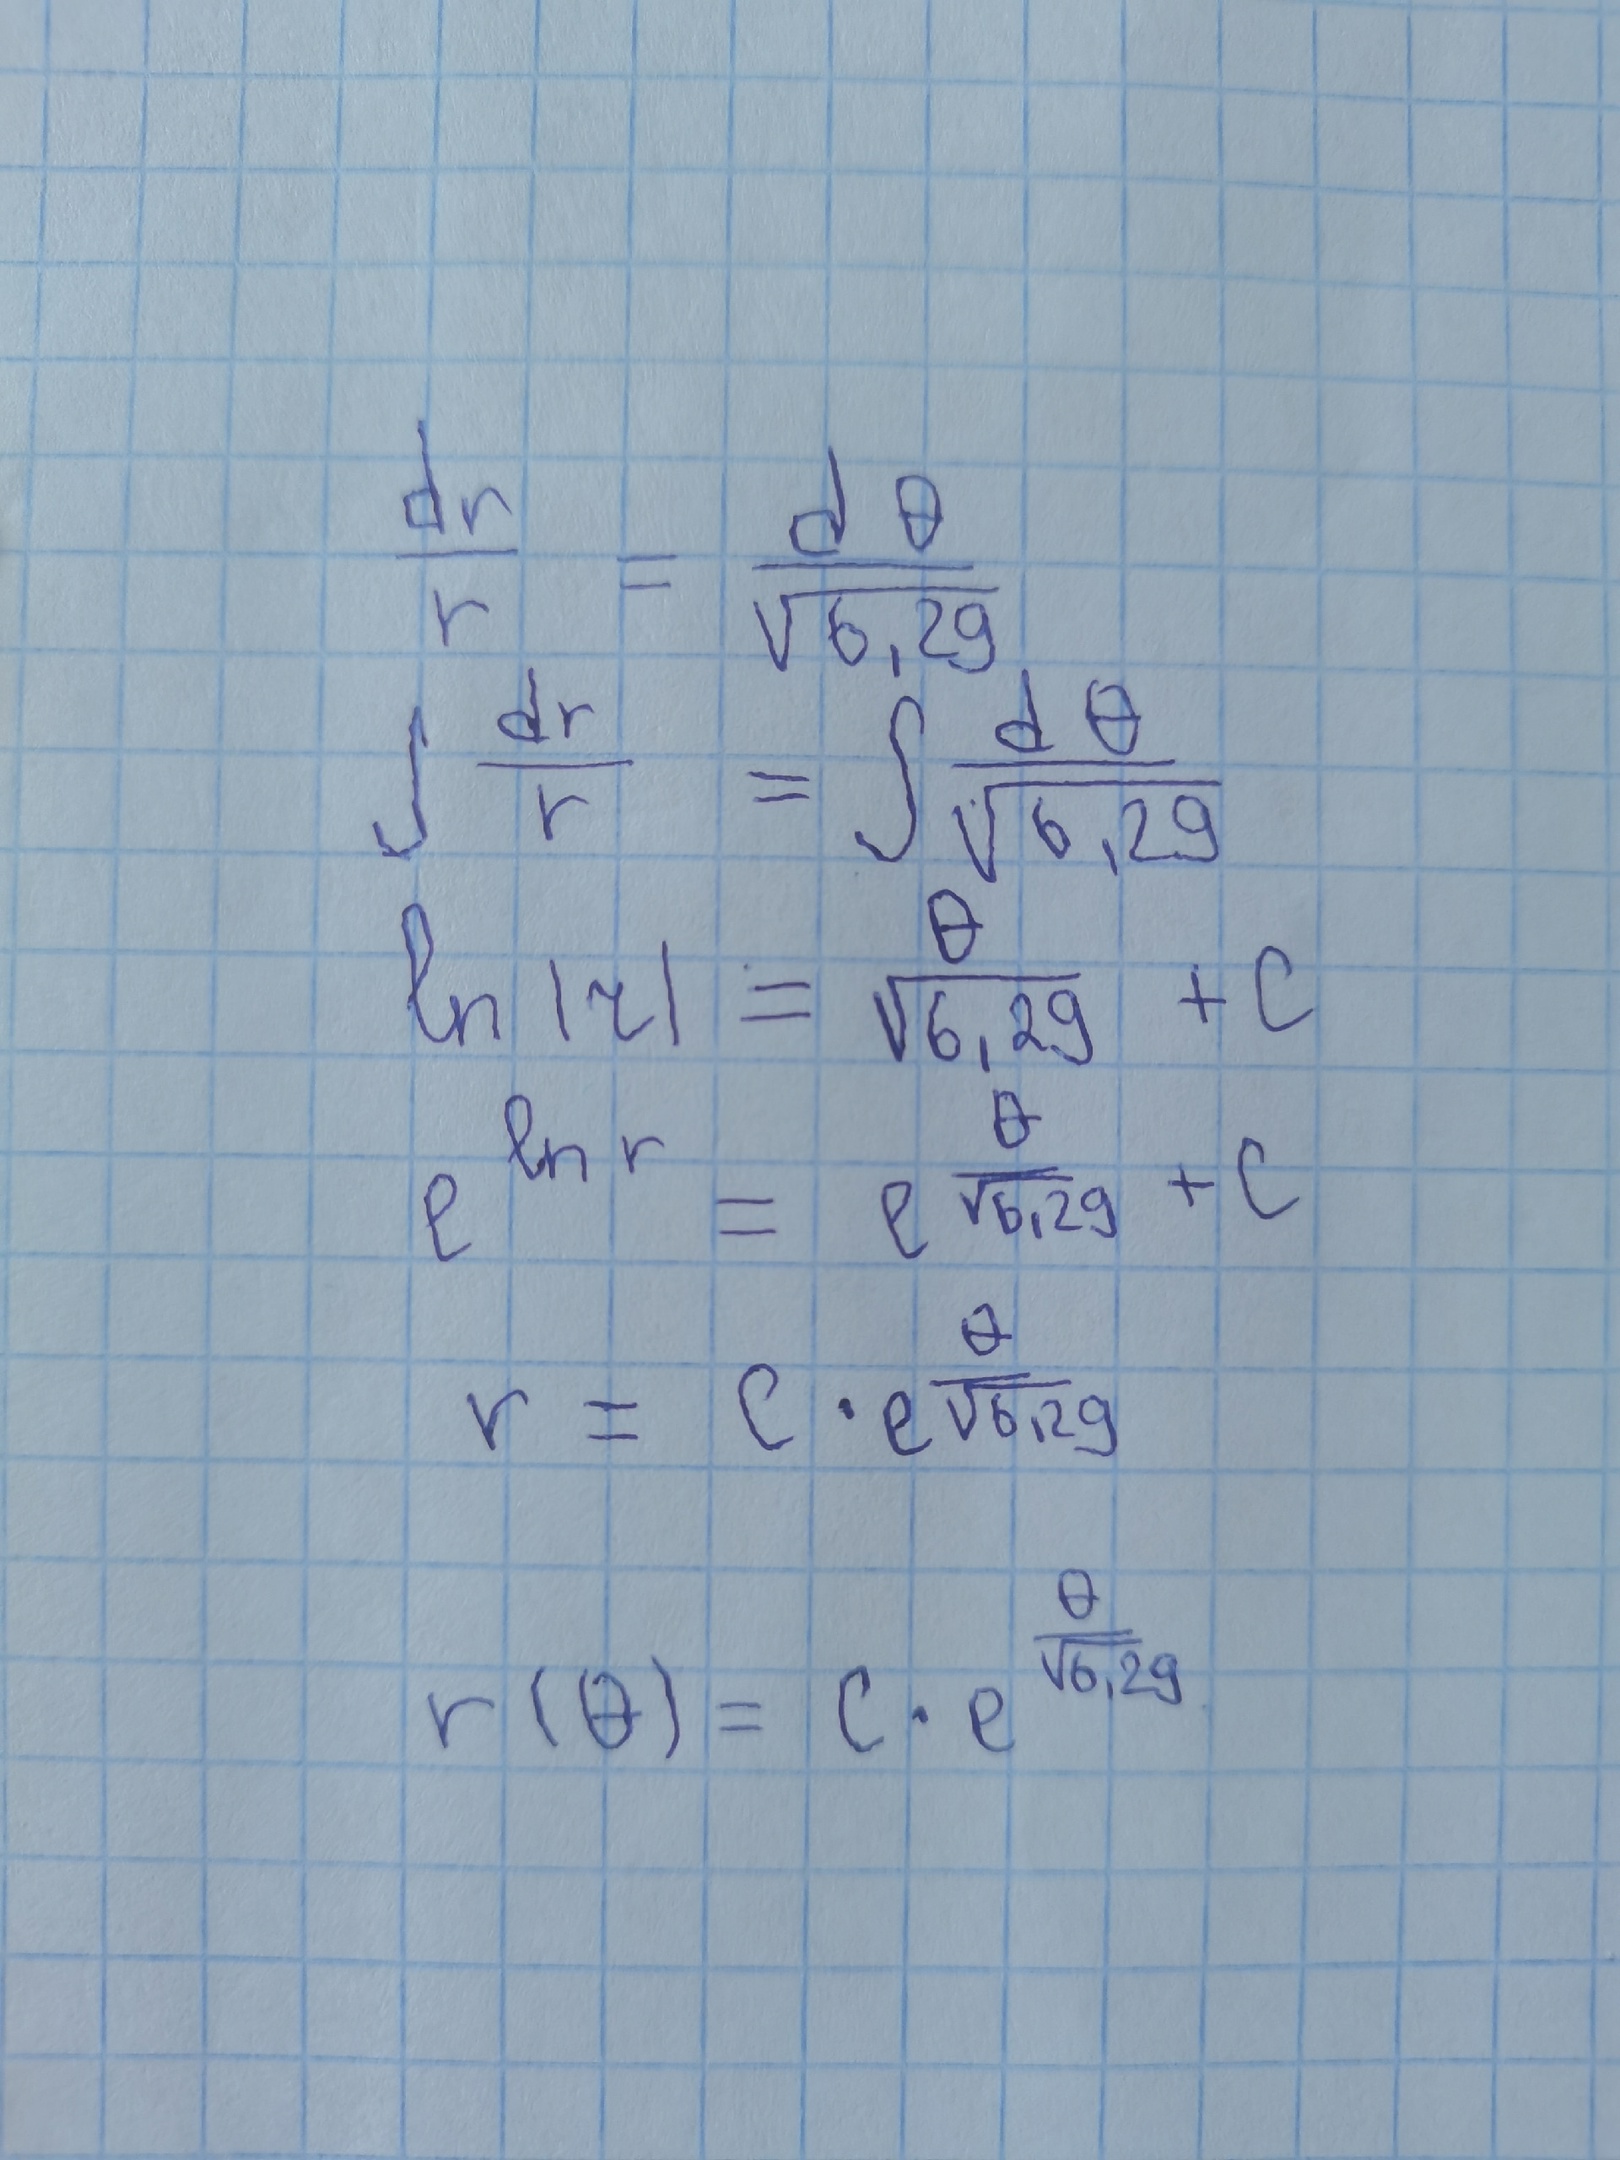 dr/r = dθ/√6,29
∫ dr/r = ∫ dθ/√6,29
ln |r| = θ/√6,29 + C
e^(ln r) = e^(θ/√6,29 + C)
r = C · e^(θ/√6,29)
r(θ) = C · e^(θ/√6,29)